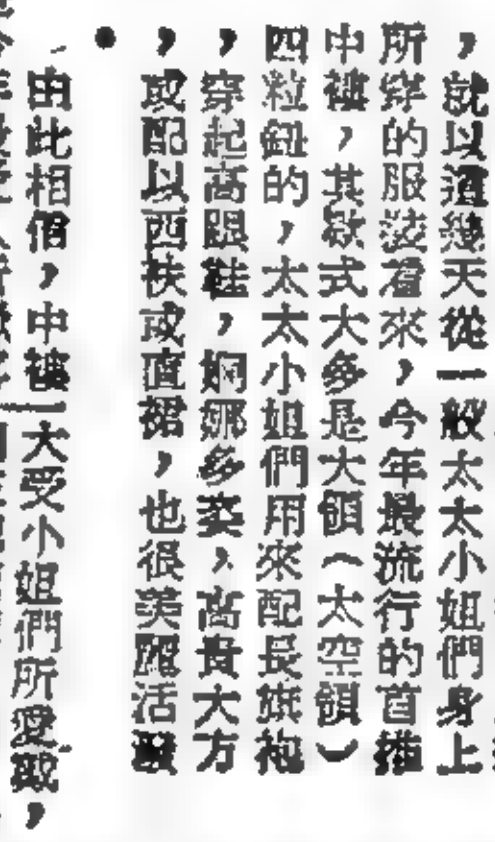 ，就以這幾天從一般太太小姐們身上
所穿的服裝看來，今年最流行的首推
中褸，其欵式大多是大領（太空領）
四粒鈕的，太太小姐們用來配長旗袍
，穿起高跟鞋，婀娜多姿，高貴大方
，或配以西裙或直裙，也很美麗活潑
。
由此相信，中褸一大受小姐們所愛戴，